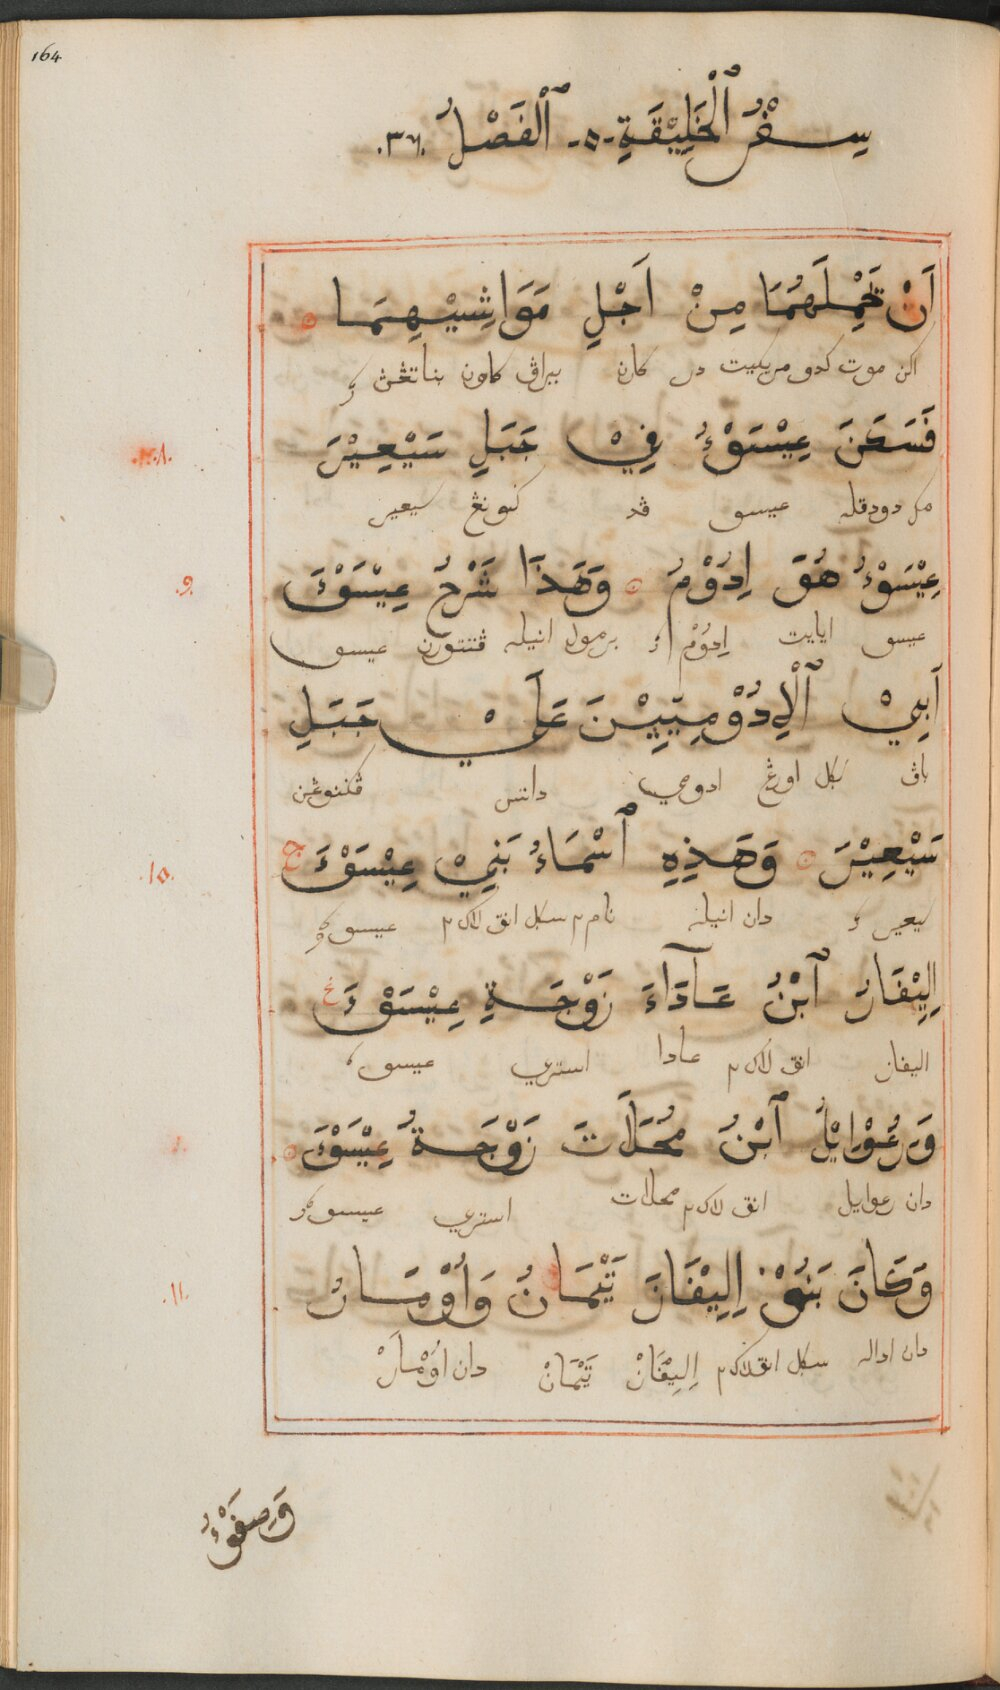 164
سِفْرُ ٱلْخَلِيْقَةِ -٥- ٱلْفَصْلُ .٣٦.
اَنْ تَحْمِلَهُمَا مِنْ اَجْلِ مَوَاشِيْهِمَا
اكن موت كدو مريكيت در كارن بناتڠن
.٨.
فَسَكَنَ عِيْسَوْءُ فِيْ جَبَلِ سَيْعِيْرَ
مك دودقله عيسو ڤد ݢونڠ سيعير
.٩.
عِيْسَوْءُ هُوَ اِدُوْمُ وَهَذَا شَرْحُ عِيْسَوْءَ
عيسو ايايت اِدُوْم برمول انيله عيسو
اَبِيْ ٱلْاِدُوْمِيِّيْنَ عَلَيْ جَبَلِ
باڤ سكل اورڠ ادومي داتس
.١٠.
سَيْعِيْرَ وَهَذِهِ ٱسْمَاءُ بَنِيْ عِيْسَوْءَ
سيعير دان انيله نام٢ سكل انق لاك٢ عيسو
اِلِيْفَازُ ٱبْنُ عَآدَآءَ زَوْجَةِ عِيْسَوْءَ
اليفاز انق لاك٢ عادا استري عيسو
وَرَعُوْايْلُ ٱبْنُ مُحَلَاتَ زَوْجَةُ عِيْسَوْءَ
دان رعوايل انق لاك٢ محلات استري عيسو
.١١.
وَكَانَ بَنُوْ اِلِيْفَازَ تَيْمَانُ وَاُوْمَارُ
دان اداله سكل انق لاك٢ اِلِيْفَازْ تَيْمَانْ دان اُوْمَارْ
وَصِفَوْءُ